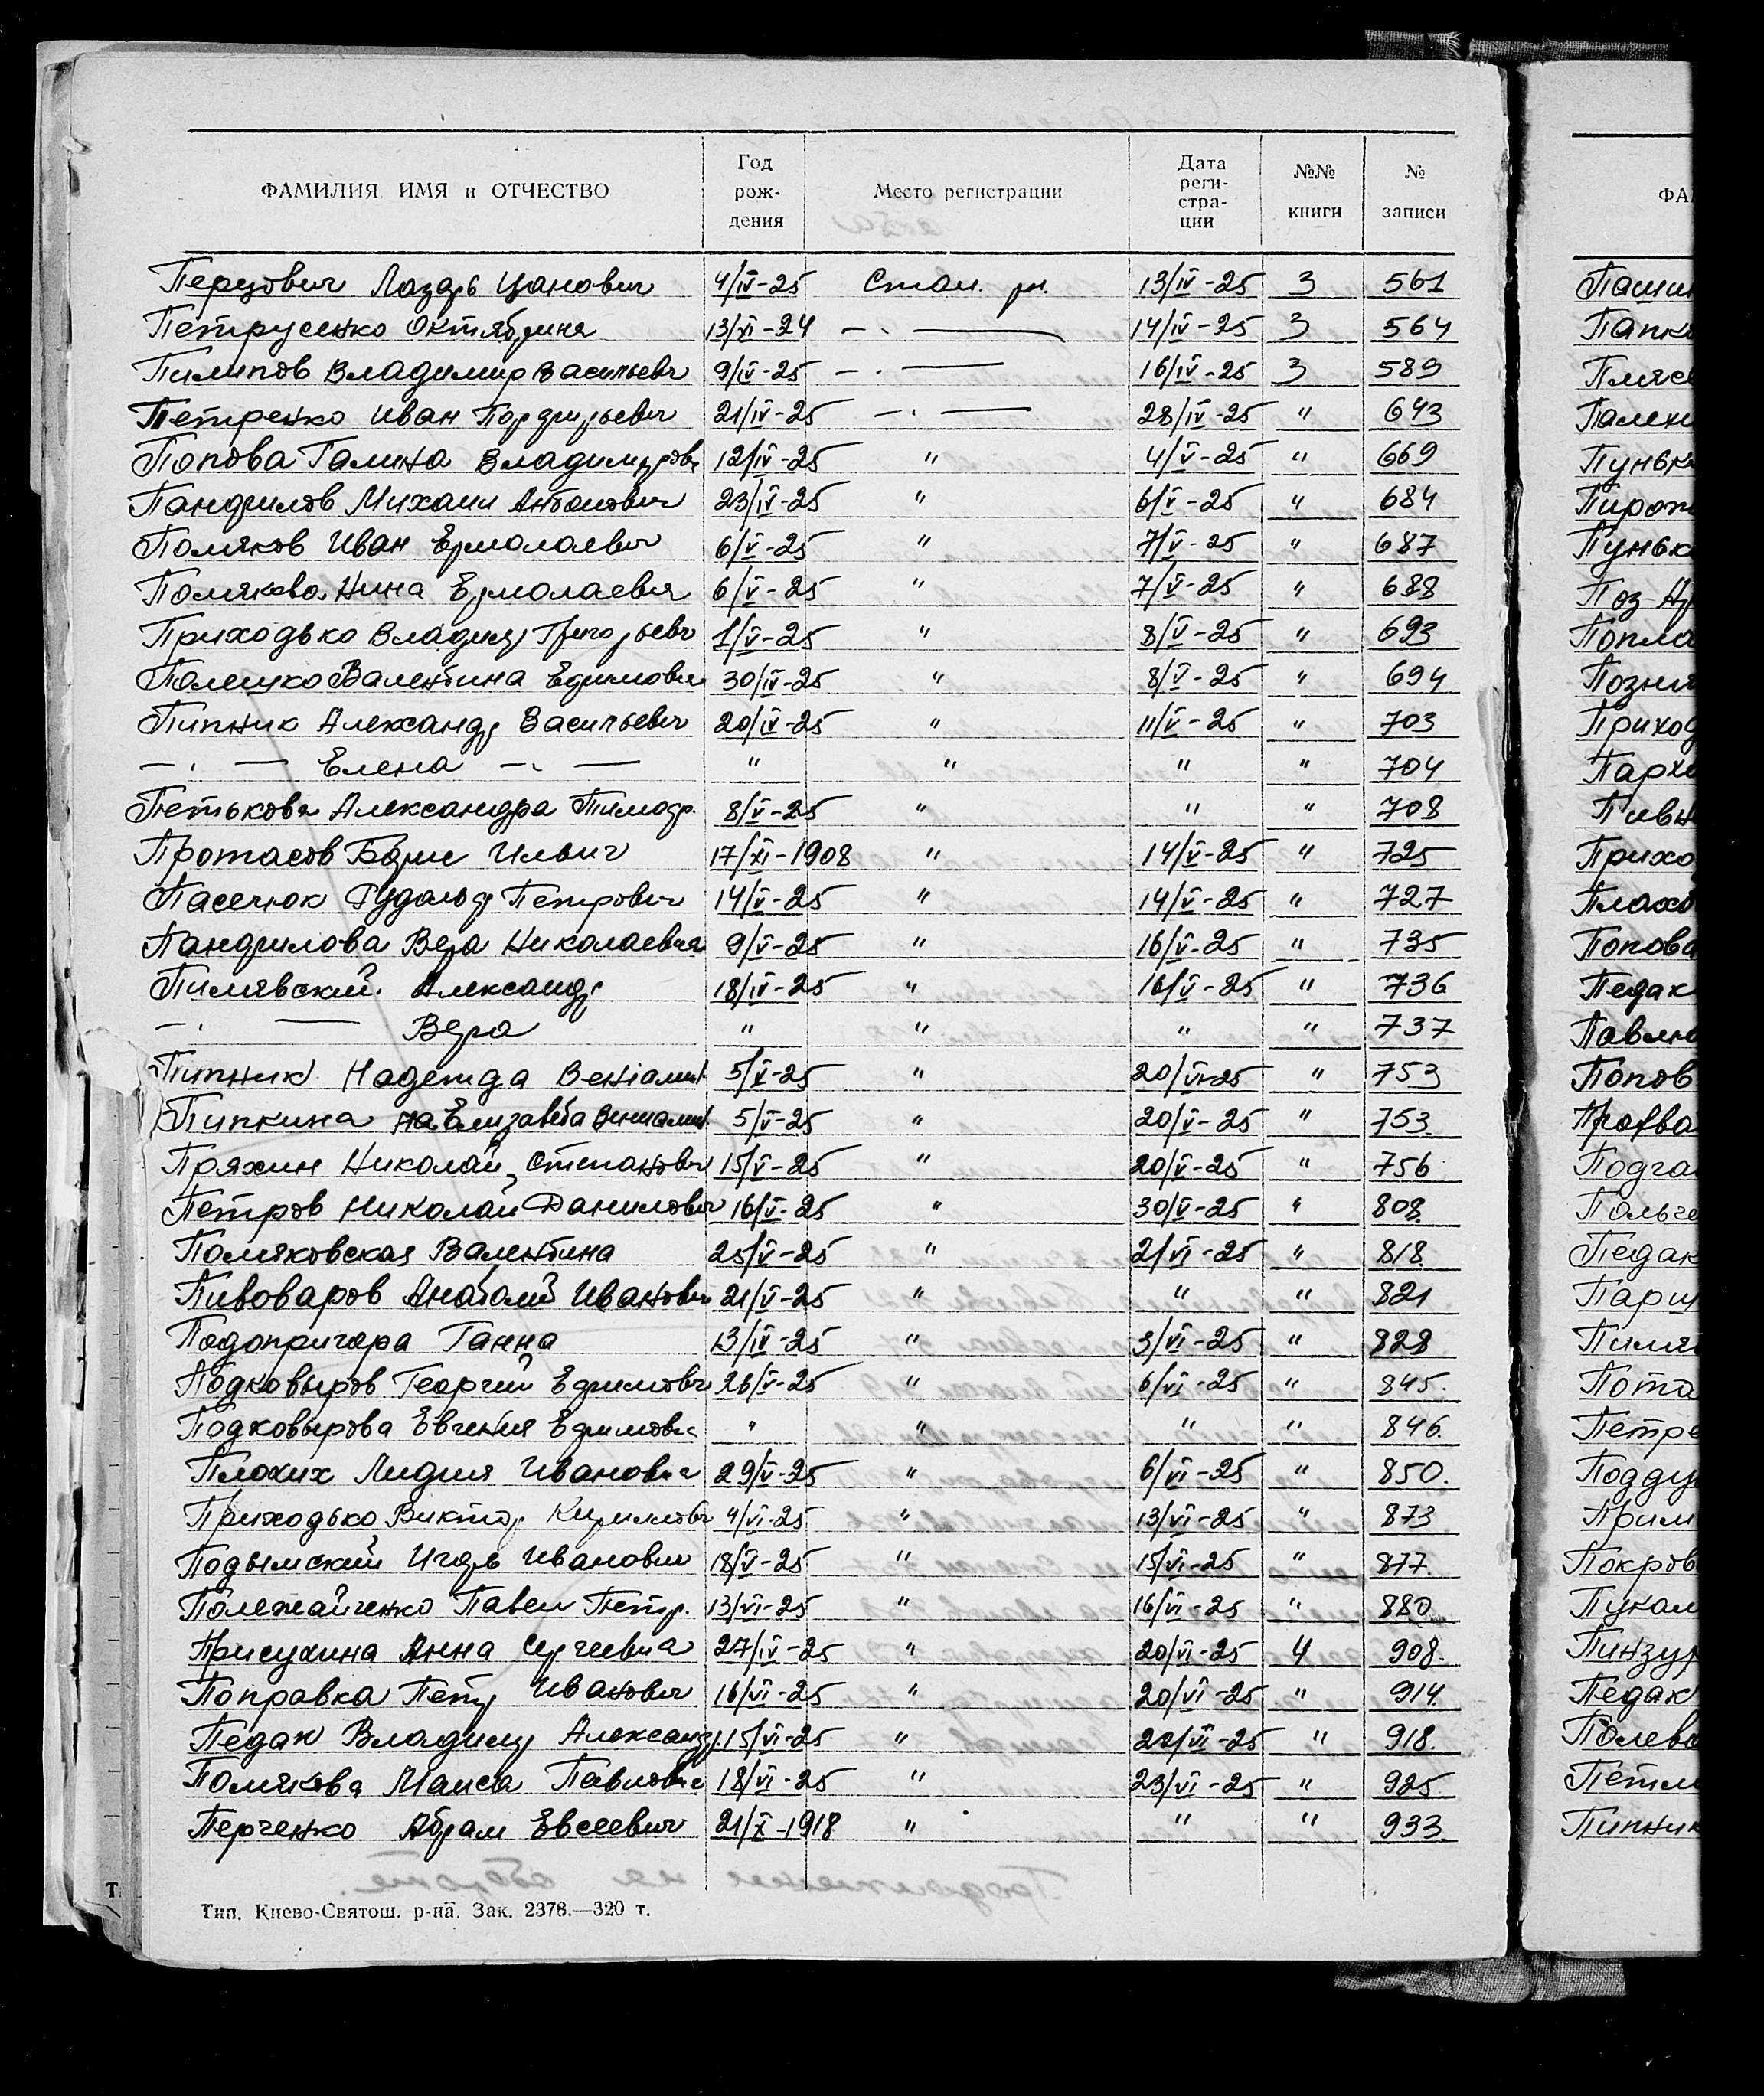 ФАМИЛИЯ ИМЯ и ОТЧЕСТВО Год рождения Место регистрации Дата регистрации №№ книги № записи
Перцович Лазарь Цанович 4/IV-25 Стан. рн. 13/IV-25 3 561
Петрусенко Октябрина 13/XI-24 — . — 14/IV-25 3 564
Пилипов Владимир Васильевич 9/IV-25 — . — 16/IV-25 3 589
Петренко Иван Порфирьевич 21/IV-25 — . — 28/IV-25 " 643
Попова Галина Владимировн 12/IV-25 " 4/V-25 " 669
Панфилов Михаил Антонович 23/IV-25 " 6/V-25 " 684
Поляков Иван Ермолаевич 6/V-25 " 7/V-25 " 687
Полякова Нина Ермолаевна 6/V-25 " 7/V-25 " 688
Приходько Владимир Григорьевич 1/V-25 " 8/V-25 " 693
Полешко Валентина Ефимовна 30/IV-25 " 8/V-25 " 694
Пипник Александр Васильевич 20/IV-25 " 11/V-25 " 703
— . — Елена — . — " " " " 704
Петькова Александра Тимоф. 8/V-25 " " " 708
Протасов Борис Ильич 17/XI-1908 " 14/V-25 " 725
Пасечюк Рудольф Петрович 14/V-25 " 14/V-25 " 727
Панфилова Вера Николаевна 9/V-25 " 16/V-25 " 735
Пилявский Александр 18/IV-25 " 16/V-25 " 736
— . — Вера " " " " 737
Пипник Надежда Веніамин. 5/V-25 " 20/VI-25 " 753
Пипкина Елизавета Вениамин. 5/V-25 " 20/V-25 " 753
Пряхин Николай Степанович 15/V-25 " 20/V-25 " 756
Петров Николай Данилович 16/V-25 " 30/V-25 " 808.
Поляковская Валентина 25/V-25 " 2/VI-25 " 818.
Пивоваров Анатолий Иванович 21/V-25 " " " 821
Подопригора Ганна 13/IV-25 " 3/VI-25 " 828
Подковыров Георгий Ефимович 26/V-25 " 6/VI-25 " 845.
Подковырова Евгения Ефимовна " " " " 846.
Плохих Лидия Ивановна 29/V-25 " 6/VI-25 " 850.
Приходько Виктор Кириллович 4/VI-25 " 13/VI-25 " 873
Подымский Игорь Иванович 18/V-25 " 15/VI-25 " 877.
Полежайченко Павел Петр. 13/VI-25 " 16/VI-25 " 880.
Присухина Анна Сергеевна 27/IV-25 " 20/VI-25 4 908.
Поправка Петр Иванович 16/VI-25 " 20/VI-25 " 914.
Педак Владимир Александр. 15/VI-25 " /VI-25 " 918.
Полякова Маиса Павловна 18/VI-25 " 23/VI-25 " 925.
Перченко Абрам Евсеевич 21/X-1918 " " " 933.
Тип. Киево-Святош. р-на. Зак. 2378.—320 т.
ФА
Пашин
Папк
Пляс
Пален
Пуньк
Пирот
Пуньк
Поз Ар
Попла
Позня
Приход
Пархо
Пивн
Прихо
Плахо
Попова
Педак
Павлю
Попов
Подга
Польче
Педак
Парш
Пиля
Пота
Петре
Подду
Прим
Покров
Пукал
Пинзур
Педак
Полева
Петл
Пипник